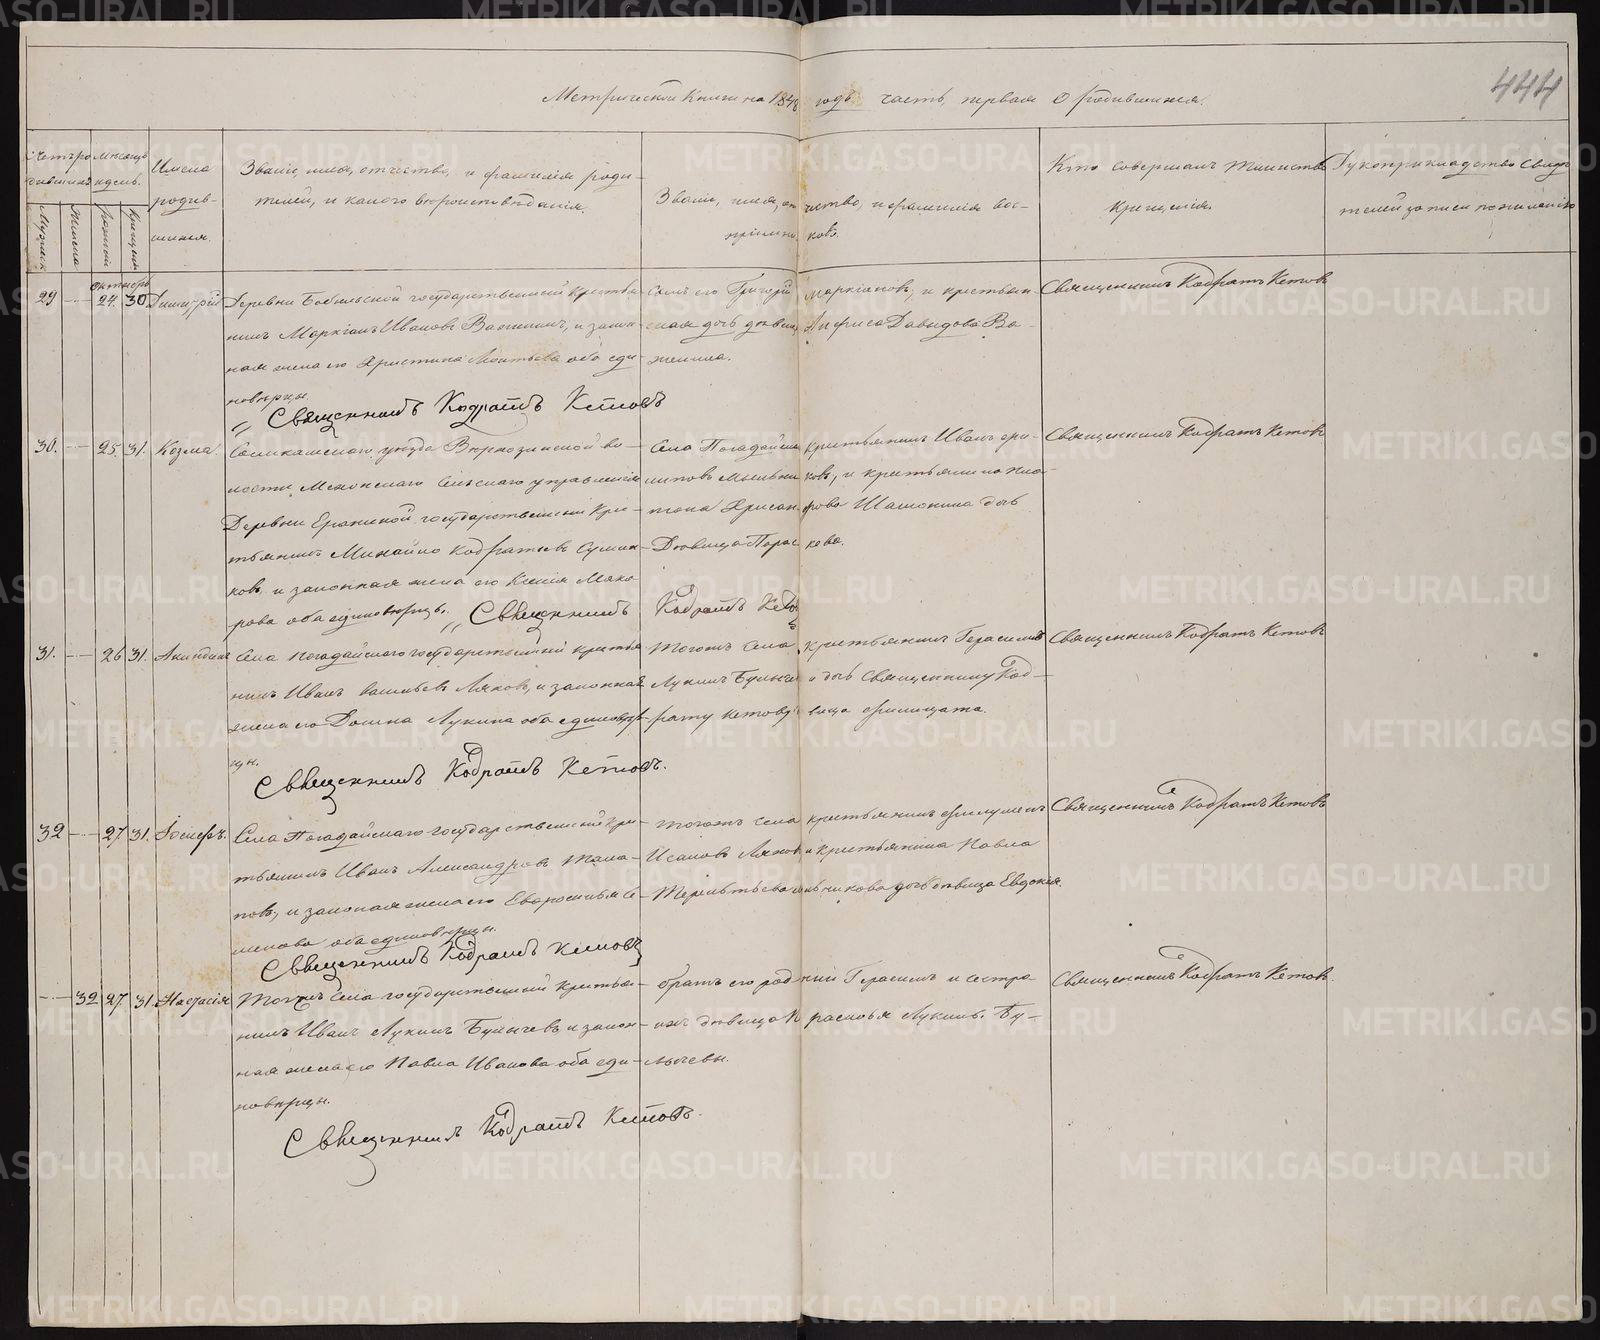 444
Метрической Книги на 1848 годъ часть первая о родившихся.
Счетъ родившихся
Мужеск
Женска
Месяцъ и день.
Рожденія
Крещенія
Имена родившихся.
Званіе, имя, отчество, и фамилія роди-
телей, и какого вероисповеданія.
Званіе, имя, отчество, и фамилія вос-
пріемниковъ.
Кто совершалъ таинство
крещенія.
Рукоприкладство свиде
телей записи по желанію
Октябрь
29 24. 30 Димитрій
Деревни государственный крестья
нинъ Маркіанъ Ивановъ Важенинъ, и закон
ная жена его Христина Леонтьева оба еди-
новерцы.
Священникъ Кодратъ Кетовъ
Сынъ его Григорій Маркіановъ, и крестьян-
ская дочь девица Анфиса Давыдова Ва-
женина.
Священникъ Кодратъ Кетовъ
30. 25. 31. Козма.
уезда во-
лости сельскаго управленія
Деревни государственный кре-
стьянинъ Михайло Кодратьевъ
ковъ, и законная жена его Ксенія Мака
рова оба единоверцы. Священникъ Кодратъ Кетовъ
Села крестьянинъ Иванъ
ковъ, и крестьянина Пла-
тона Хрисанфова дочь
Девица Параскова.
Священникъ Кодратъ Кетовъ
31. 26 31. Акиндинъ
Села государственный крестья
нинъ Иванъ Васильевъ Ляховъ, и законная
жена его Домна Лукина оба единовер-
цы.
Священникъ Кодратъ Кетовъ.
Тогожъ села крестьянинъ Герасимъ
Лукинъ Булычевъ и дочь Священнику Код-
рату Кетову девица Филицата.
Священникъ Кодратъ Кетовъ
32 27. 31. Іосифъ.
Села государственный кре-
стьянинъ Иванъ Александровъ
повъ, и законная жена его Евфросинья Се-
менова оба единоверцы.
Священникъ Кодратъ Кетовъ
Тогожъ села крестьянинъ Филумень
Исаковъ Ляховъ и крестьянина Павла
Терентьева дочь девица Евдокія.
Священникъ Кодратъ Кетовъ
32 27. 31. Настасія
Тогожъ села государственный крестья-
нинъ Иванъ Лукинъ Булычевъ, и закон-
ная жена его Павла Иванова оба еди-
новерцы.
Священникъ Кодратъ Кетовъ.
братъ его родный Герасимъ и сестра
ихъ девица Лукины Бу-
лычевы.
Священникъ Кодратъ Кетовъ.
METRIKI.GASO-URAL.RU